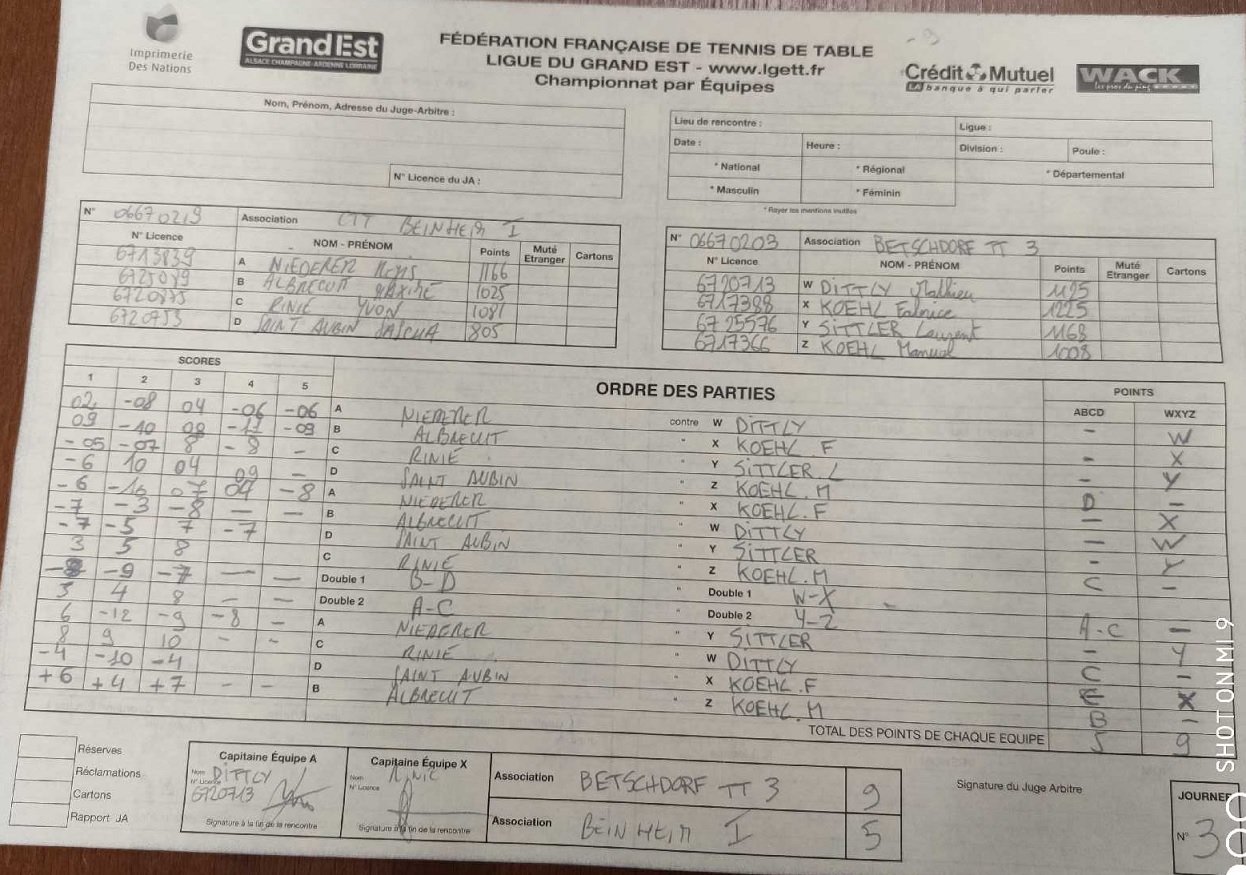 Imprimerie
Des Nations
GrandEst
ALSACE CHAMPAGNE-ARDENNE LORRAINE
FÉDÉRATION FRANÇAISE DE TENNIS DE TABLE
LIGUE DU GRAND EST - www.lgett.fr
Championnat par Équipes
Crédit Mutuel
LA banque à qui parler
WACK
les pros du ping
Nom, Prénom, Adresse du Juge-Arbitre :
N° Licence du JA :
Lieu de rencontre : Ligue :
Date : Heure : Division : Poule :
* National * Régional * Départemental
* Masculin * Féminin
* Rayer les mentions inutiles
N° 06670219 Association CTT BEINHEIM I
N° Licence NOM - PRÉNOM Points Muté Etranger Cartons
6713839 A NIEDERER 1166
6725089 B ALBRECHT MAXIME 1025
C RINIE YVON 1081
6720953 D SAINT AUBIN SASCHA 805
N° 06670203 Association BETSCHDORF TT 3
N° Licence NOM - PRÉNOM Points Muté Etranger Cartons
6720713 W DITTLY Mathieu 1195
6717388 X KOEHL Fabrice 1225
6725576 Y SITTLER Laurent 1168
6717366 Z KOEHL Manuel 1008
SCORES
1 2 3 4 5
ORDRE DES PARTIES
POINTS
ABCD WXYZ
02 -08 04 -06 -06 A NIEDERER contre W DITTLY - W
09 -10 08 -11 -09 B ALBRECHT " X KOEHL.F - X
-05 -07 8 -8 - C RINIE " Y SITTLER.L - Y
-6 10 04 09 - D SAINT AUBIN " Z KOEHL.M D -
-6 07 04 -8 A NIEDERER " X KOEHL.F - X
-7 -3 -8 - - B ALBRECHT " W DITTLY - W
-7 -5 7 -7 D SAINT AUBIN " Y SITTLER - Y
3 5 8 C RINIE " Z KOEHL.M C -
-9 -7 - - Double 1 B-D " Double 1 W-X -
3 4 8 - - Double 2 A-C " Double 2 Y-Z A-C -
6 -12 -9 -8 - A NIEDERER " Y SITTLER - Y
8 9 10 - - C RINIE " W DITTLY C -
-4 -10 -4 D SAINT AUBIN " X KOEHL.F X
+6 +4 +7 - - B ALBRECHT " Z KOEHL.M B -
TOTAL DES POINTS DE CHAQUE EQUIPE 5 9
Réserves
Réclamations
Cartons
Rapport JA
Capitaine Équipe A
Nom DITTLY
N° Licence 6720713
Signature à la fin de la rencontre
Capitaine Équipe X
Nom RINIE
N° Licence
Signature à la fin de la rencontre
Association BETSCHDORF TT 3 9
Association BEINHEIM I 5
Signature du Juge Arbitre
JOURNEE
N° 3
SHOT ON MI 9